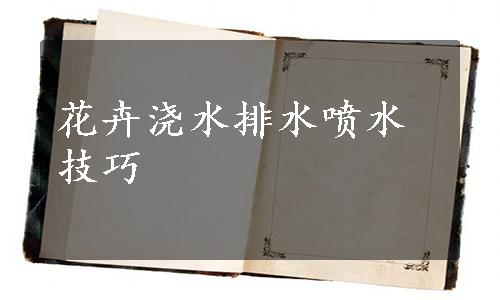 花卉浇水排水喷水
技巧